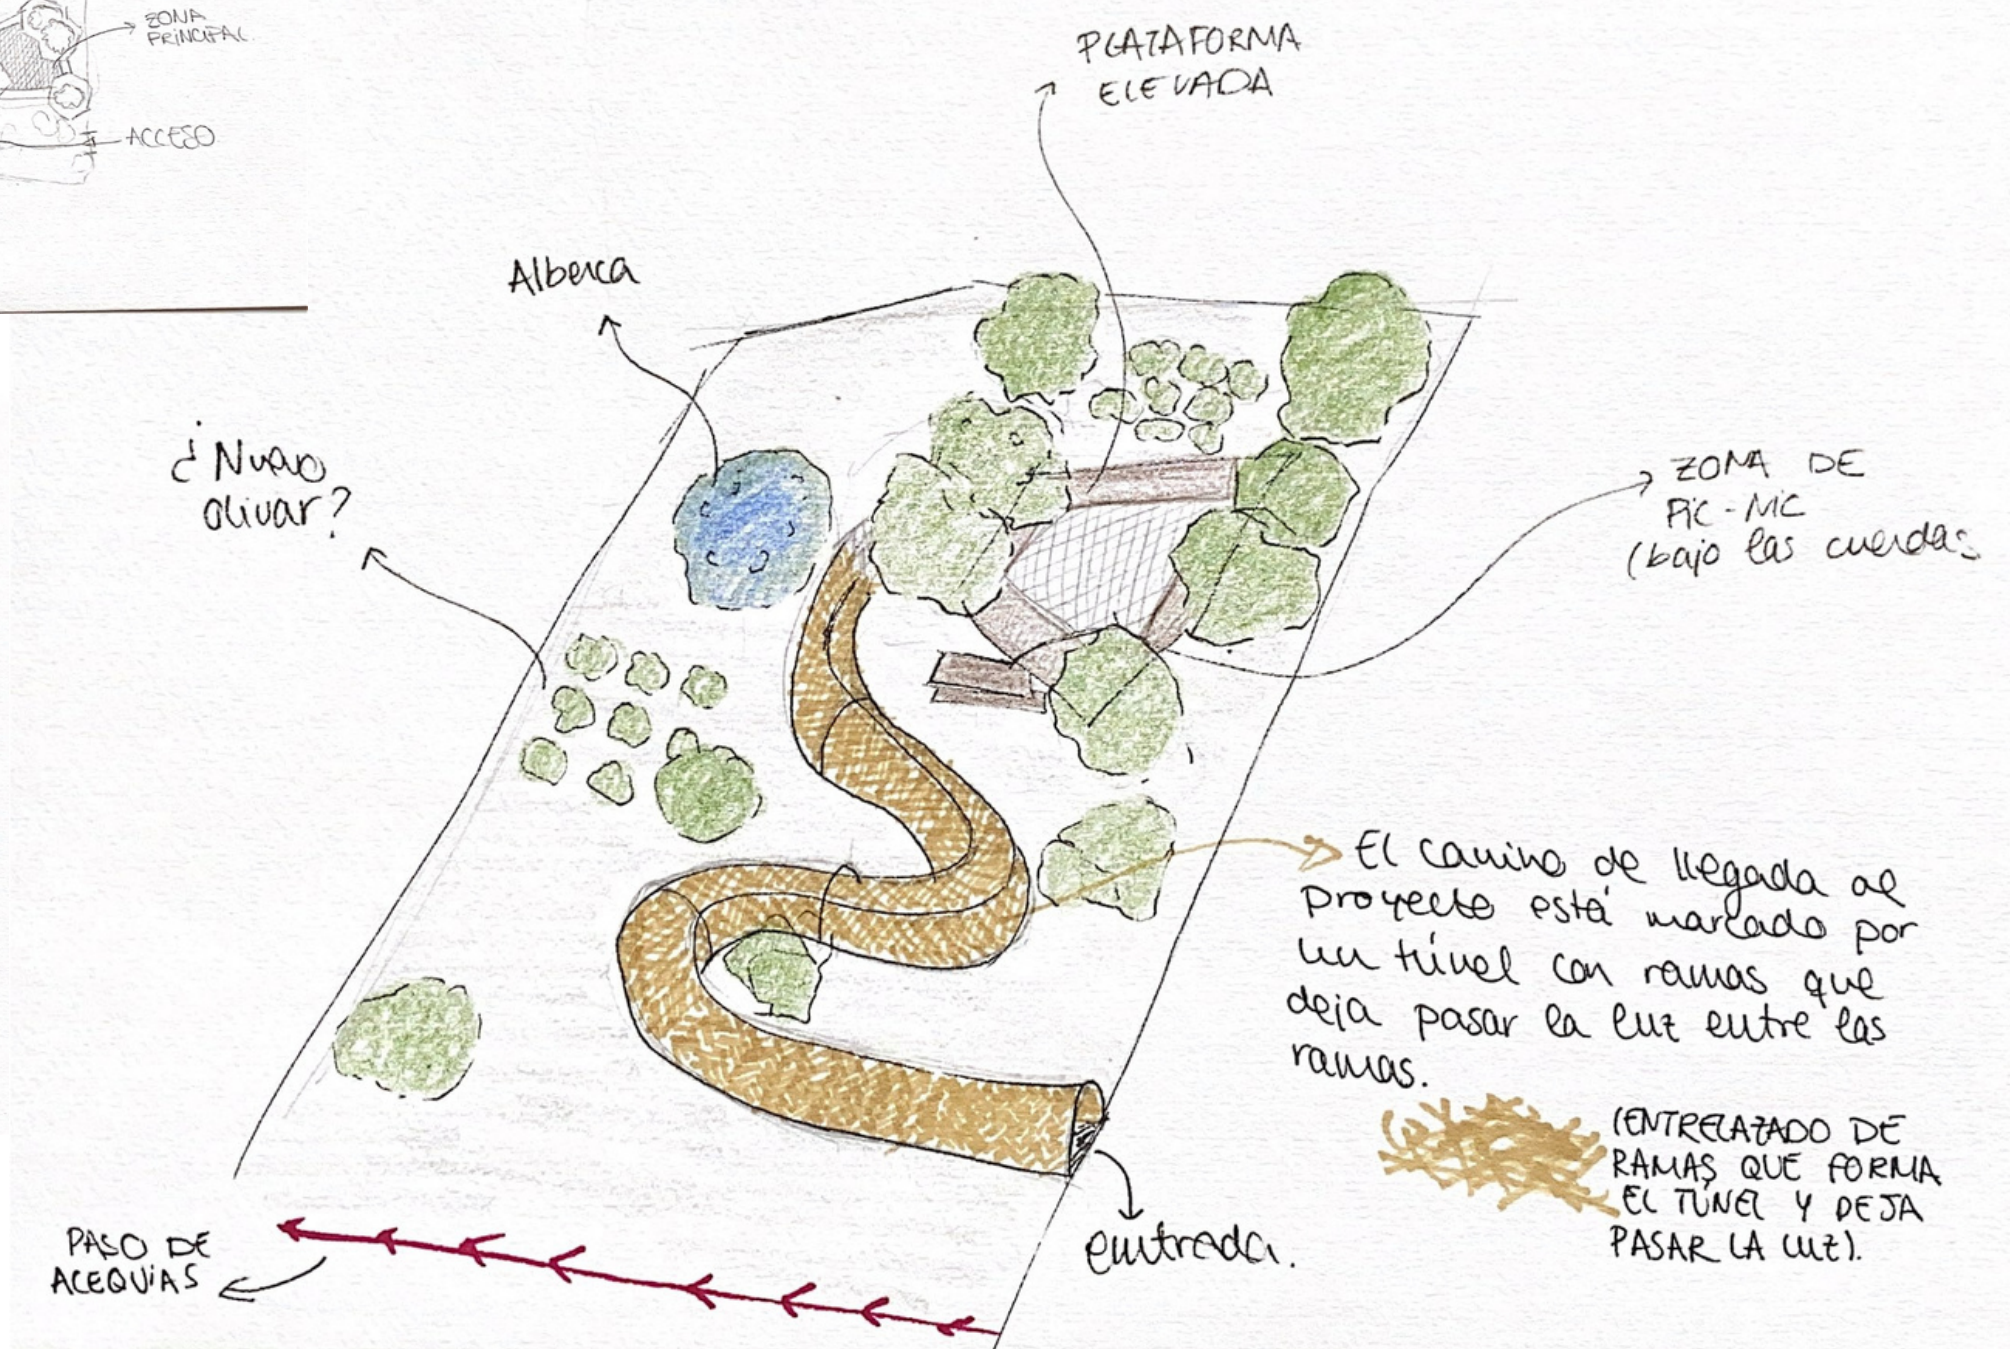 ZONA
PRINCIPAL
ACCESO
PLATAFORMA
ELEVADA
Alberca
¿Nuevo
olivar?
ZONA DE
PIC-NIC
(bajo las cuerdas
El camino de llegada al
proyecto está marcado por
un túnel con ramas que
deja pasar la luz entre las
ramas.
(ENTRELAZADO DE
RAMAS QUE FORMA
EL TÚNEL Y DEJA
PASAR LA LUZ).
entrada.
PASO DE
ACEQUIAS